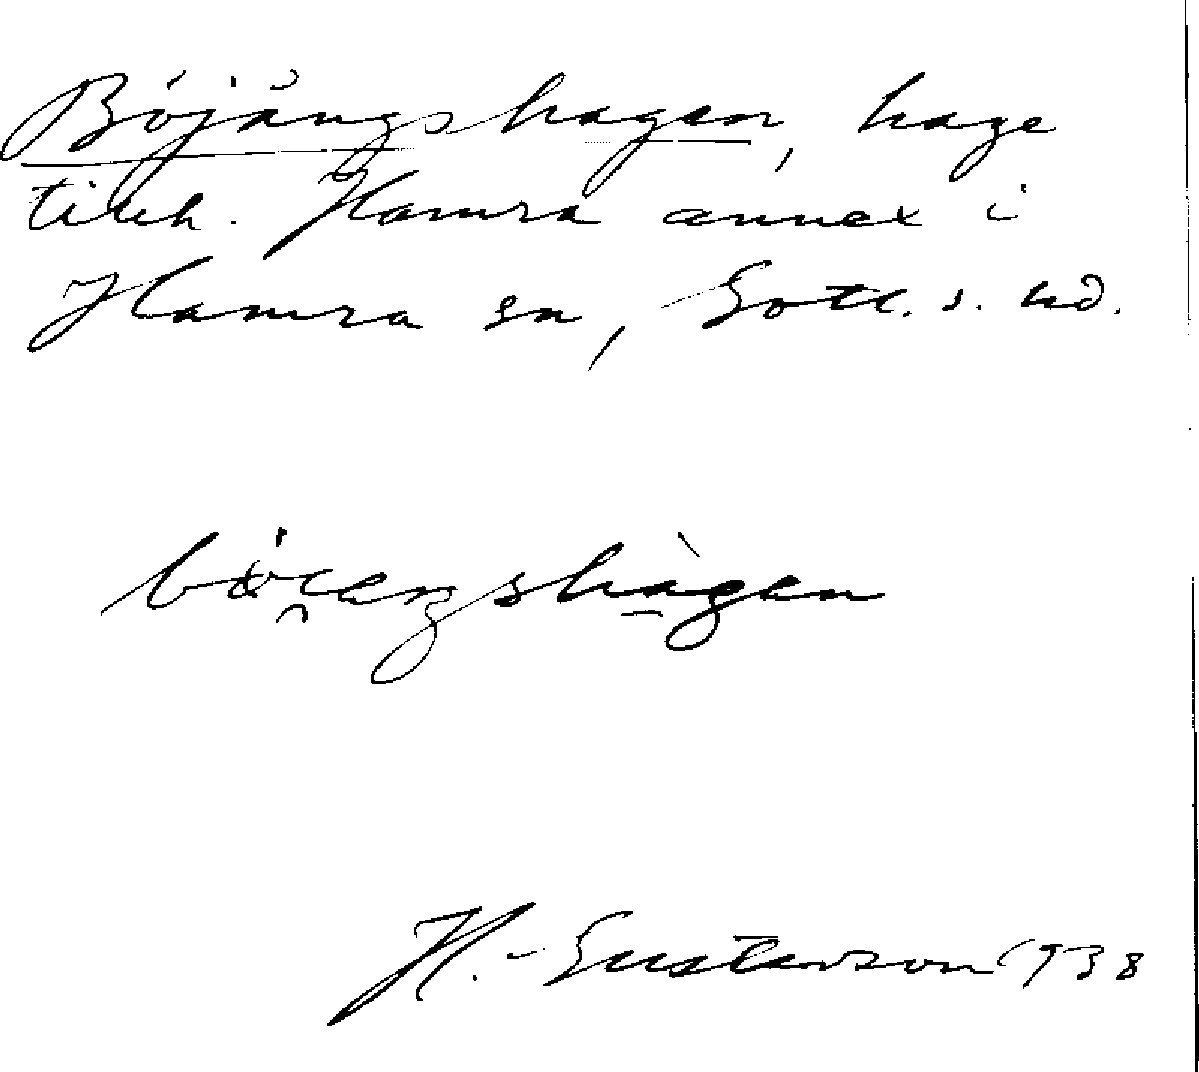 Böjängshagen, hage
tillh. Hamra annex i
Hamra sn, Gotl. s. hd.
H. Gustavson 1938